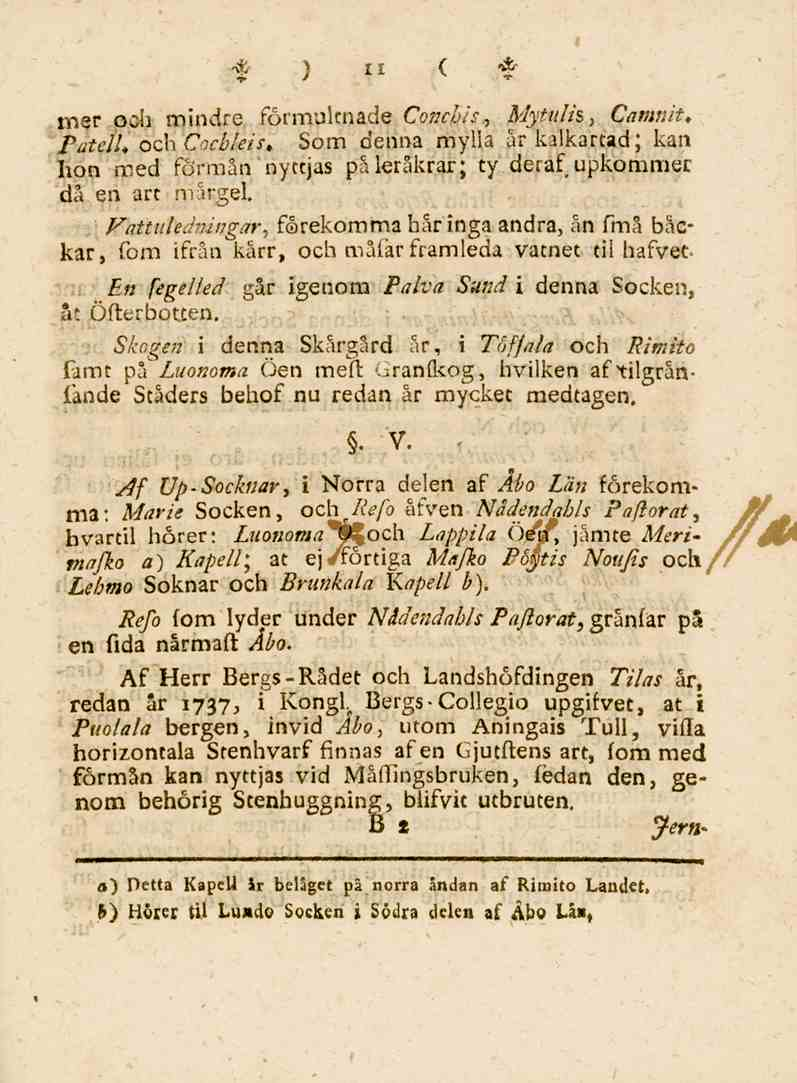 ) 11 (
mer och mindre förmulknade Conchis, Mytulis, Camnit.
Patell. och Cochleis. Som denna mylla är kalkartad; kan
hon med förmån nyttjas på leråkrar; ty deraf upkommer
då en art märgel.
Vattuledningar, förekomma här inga andra, än ſmå bäc-
kar, ſom ifrån kärr, och måſar framleda vatnet til hafvet.
En ſegelled går igenom Palva Sund i denna Socken,
åt Öſterbotten.
Skogen i denna Skärgård är, i Töfſala och Rimito
ſamt på Luonoma Öen meſt Granſkog, hvilken af tilgrän-
ſande Städers behof nu redan är mycket medtagen.
§. V.
Af Up-Socknar, i Norra delen af Åbo Län förekom-
ma: Marie Socken, och Reſo äfven Nådendahls Paſtorat,
hvartil hörer: Luonoma och Lappila Öen, jämte Meri-
maſko a) Kapell; at ej förtiga Maſko Pöytis Nouſis och
Lehmo Soknar och Brunkala Kapell b).
Reſo ſom lyder under Nådendahls Paſtorat, gränſar på
en ſida närmaſt Åbo.
Af Herr Bergs-Rådet och Landshöfdingen Tilas är,
redan år 1737, i Kongl. Bergs-Collegio upgifvet, at i
Puolala bergen, invid Åbo, utom Aningais Tull, viſſa
horizontala Stenhvarf finnas af en Gjutſtens art, ſom med
förmån kan nyttjas vid Mäſſingsbruken, ſedan den, ge-
nom behörig Stenhuggning, blifvit utbruten.
B 2 Jern-
a) Detta Kapell är beläget på norra ändan af Rimito Landet.
b) Hörer til Lundo Socken i Södra delen af Åbo Län.